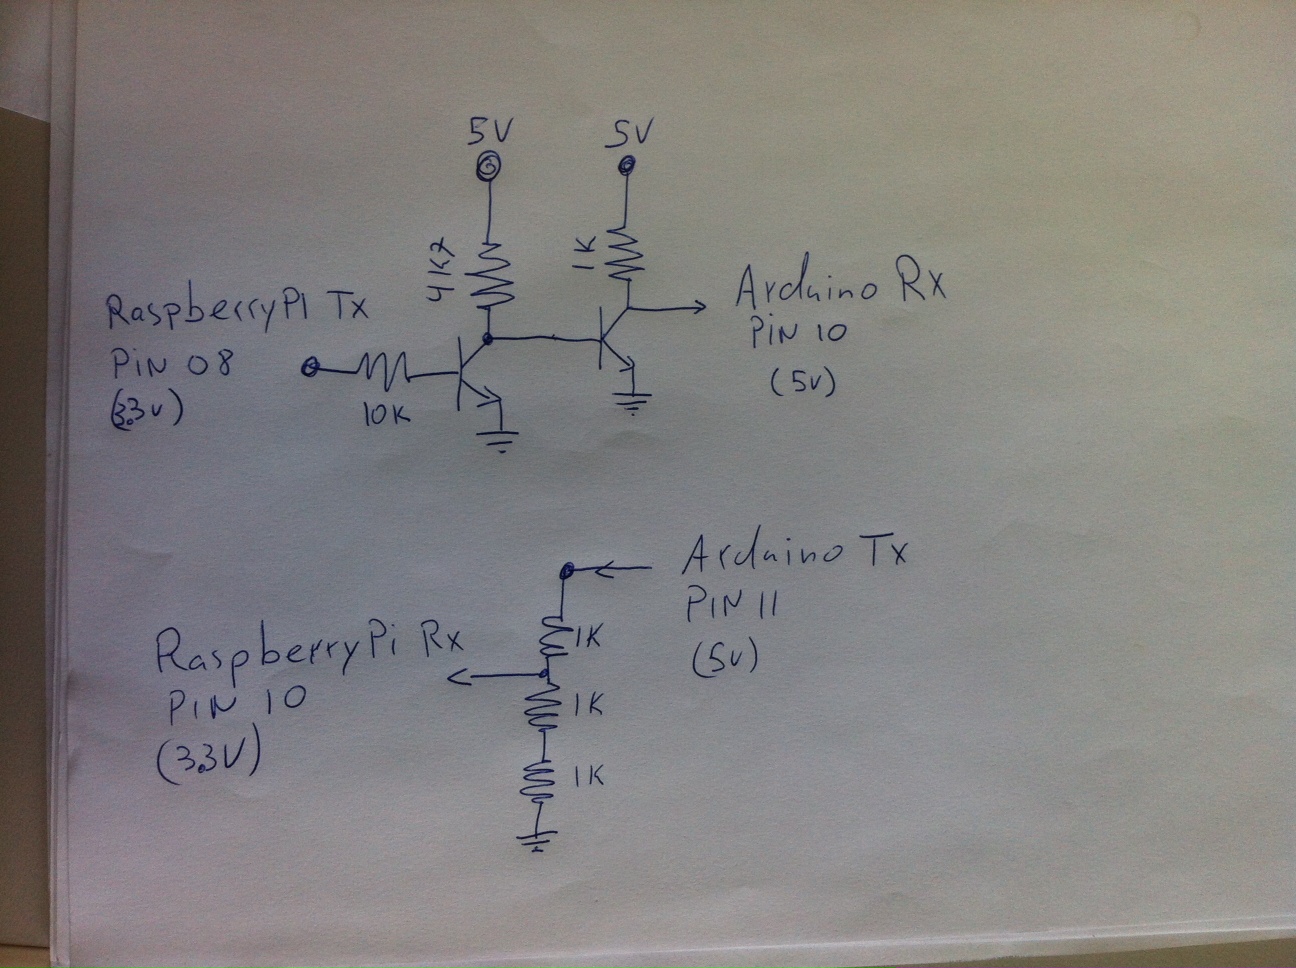 5V
5V
4K7
1K
RaspberryPi Tx
PiN 08
(3.3v)
10K
Arduino Rx
PiN 10
(5v)
Arduino Tx
PIN 11
(5v)
RaspberryPi Rx
PiN 10
(3.3V)
1K
1K
1K